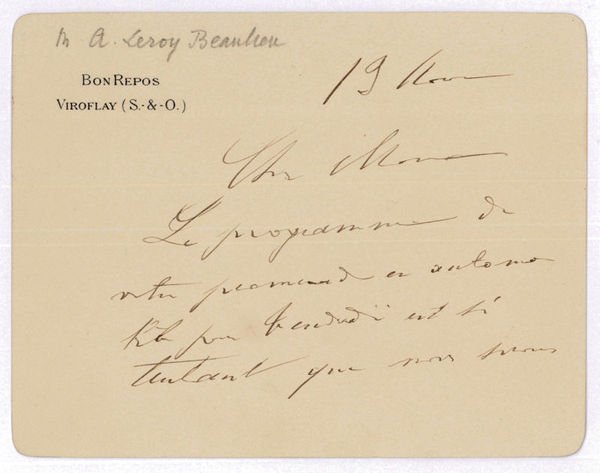 M A. Leroy Beaulieu
BON REPOS
VIROFLAY (S.-&-O.)
19 Nov
Cher Mons
Le programme de
votre promenade en automo
bile pour Vendredi est si
tentant que nous